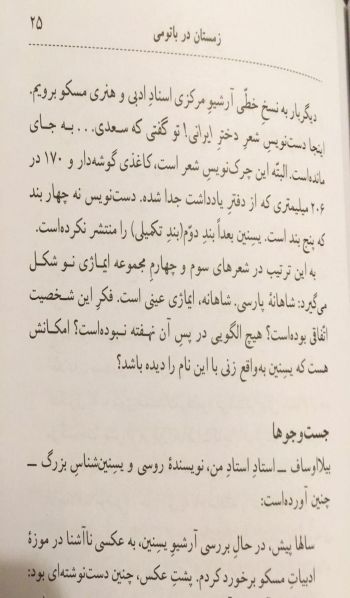 زمستان در باتومی ۲۵
دیگربار به نسخِ خطّی آرشیو مرکزی اسنادِ ادبی و هنری مسکو برویم.
اینجا دست‌نویسِ شعرِ دخترِ ایرانی! تو گفتی که سعدی... به جای
مانده‌است. البتّه این چرک‌نویسِ شعر است، کاغذی گوشه‌دار و ۱۷۰ در
۲۰۶ میلیمتری که از دفترِ یادداشت جدا شده. دست‌نویس نه چهار بند
که پنج بند است. یسِنین بعداً بندِ دوّم(بندِ تکمیلی) را منتشر نکرده‌است.
به این ترتیب در شعرهای سوم و چهارمِ مجموعه ایماژی نو شکل
می‌گیرد: شاهانهٔ پارسی. شاهانه، ایماژی عینی است. فکرِ این شخصیت
اتّفاقی بوده‌است؟ هیچ الگویی در پسِ آن نهفته نبوده‌است؟ امکانش
هست که یسِنین به‌واقع زنی با این نام را دیده باشد؟
جست‌وجوها
بیلااوساف ــ استادِ استادِ من، نویسندهٔ روسی و یسِنین‌شناسِ بزرگ ــ
چنین آورده‌است:
سالها پیش، در حالِ بررسی آرشیو یسِنین، به عکسی ناآشنا در موزهٔ
ادبیاتِ مسکو برخورد کردم. پشتِ عکس، چنین دست‌نوشته‌ای بود: